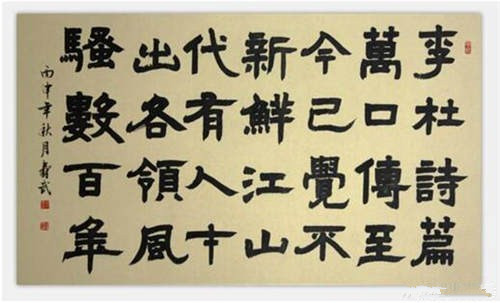 李杜詩篇
萬口傳至
今已覺不
新鮮江山
代有人才
出各領風
騷數百年
丙申年秋月